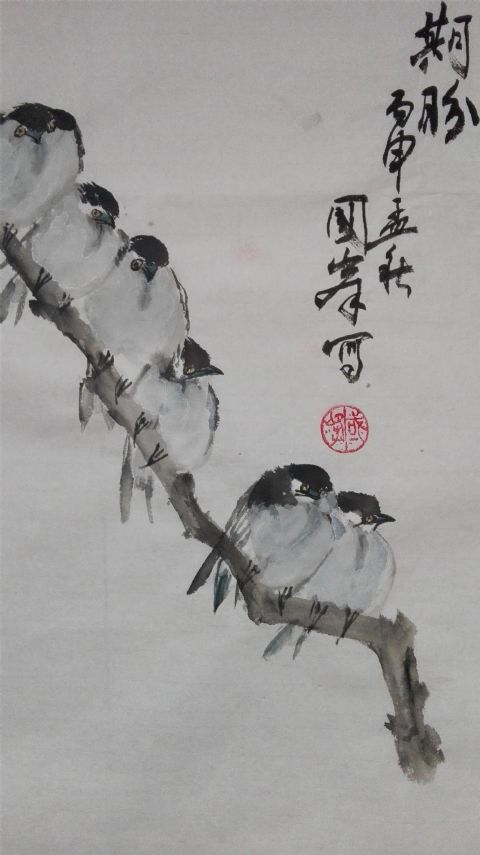 期盼
丙申孟秋
國峯写